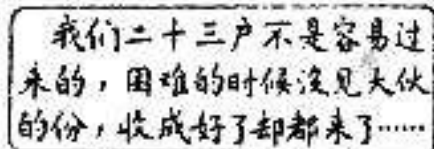 我们二十三户不是容易过
来的，困难的时候没见大伙
的份，收成好了却都来了……